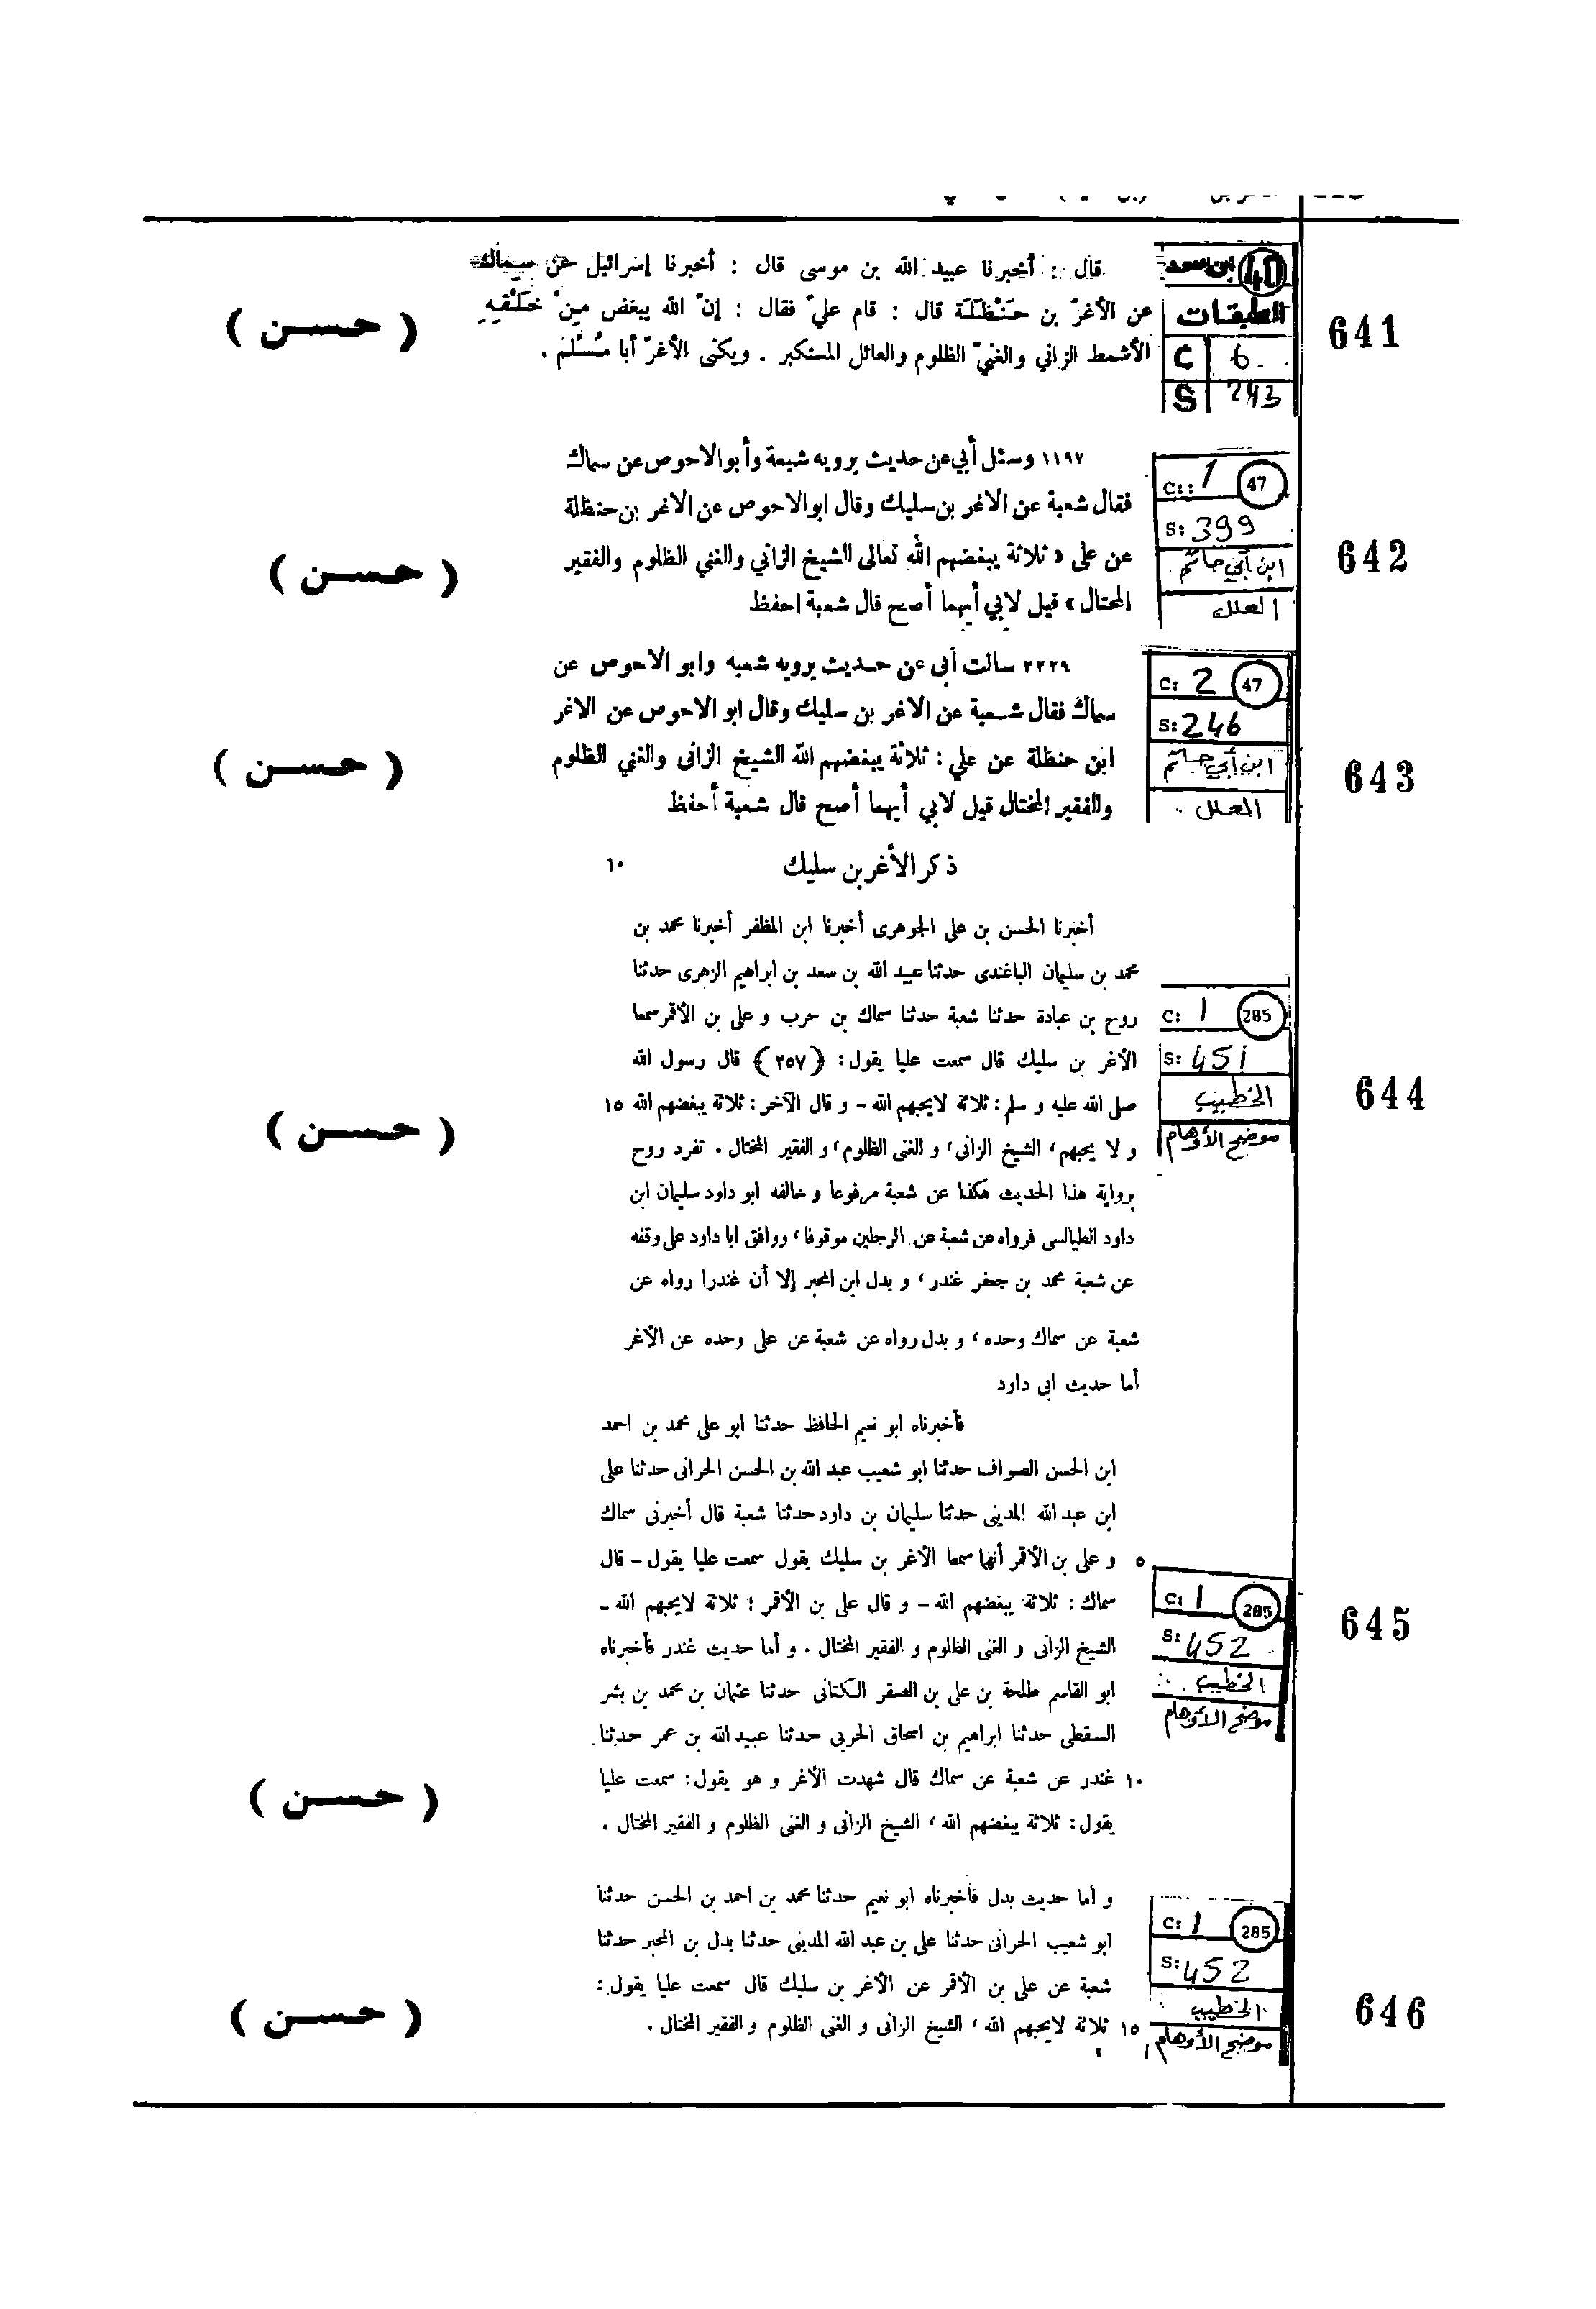 641
40 ابن سعد
الطبقات
C 6
S 243
قال : أخبرنا عبيد الله بن موسى قال : أخبرنا إسرائيل عن سماك
عن الأغرّ بن حَنْظَلَة قال : قام عليّ فقال : إنّ الله يبغض مِنْ خَلْقِهِ
الأشمط الزاني والغنيّ الظلوم والعائل المستكبر . ويكنى الأغرّ أبا مُسْلم .
( حسن )
642
C: 1 47
S: 399
ابن أبي حاتم
العلل
١١٩٧ وسئل أبي عن حديث يرويه شعبة وأبو الاحوص عن سماك
فقال شعبة عن الاغر بن سليك وقال ابو الاحوص عن الاغر بن حنظلة
عن على « ثلاثة يبغضهم الله تعالى الشيخ الزاني والغني الظلوم والفقير
المحتال » قيل لابي أيهما أصح قال شعبة احفظ
( حسن )
643
C: 2 47
S: 246
ابن أبي حاتم
العلل
٢٢٢٩ سالت أبي عن حديث يرويه شعبه وابو الاحوص عن
سماك فقال شعبة عن الاغر بن سليك وقال ابو الاحوص عن الاغر
ابن حنظلة عن علي : ثلاثة يبغضهم الله الشيخ الزانى والغني الظلوم
والفقير المختال قيل لابي أيهما أصح قال شعبة أحفظ
( حسن )
ذكر الأغر بن سليك ١٠
644
C: 1 285
S: 451
الخطيب
موضح الأوهام
أخبرنا الحسن بن على الجوهرى أخبرنا ابن المظفر أخبرنا محمد بن
محمد بن سليمان الباغندى حدثنا عبيد الله بن سعد بن ابراهيم الزهرى حدثنا
روح بن عبادة حدثنا شعبة حدثنا سماك بن حرب و على بن الأقمر سمعا
الأغر بن سليك قال سمعت عليا يقول : (٢٥٧) قال رسول الله
صلى الله عليه و سلم : ثلاثة لايحبهم الله - و قال الآخر : ثلاثة يبغضهم الله ١٥
و لا يحبهم ، الشيخ الزانى ، و الغنى الظلوم ، و الفقير المختال . تفرد روح
برواية هذا الحديث هكذا عن شعبة مرفوعا و خالفه ابو داود سليمان ابن
داود الطيالسى فرواه عن شعبة عن الرجلين موقوفا ، ووافق ابا داود على وقفه
عن شعبة محمد بن جعفر غندر ، و بدل ابن المحبر إلا أن غندرا رواه عن
شعبة عن سماك وحده ، و بدل رواه عن شعبة عن على وحده عن الأغر
أما حديث ابى داود
( حسن )
645
C: 1 285
S: 452
الخطيب
موضح الأوهام
فأخبرناه ابو نعيم الحافظ حدثنا ابو على محمد بن احمد
ابن الحسن الصواف حدثنا ابو شعيب عبد الله بن الحسن الحرانى حدثنا على
ابن عبد الله المدينى حدثنا سليمان بن داود حدثنا شعبة قال أخبرنى سماك
٥ و على بن الأقمر أنهما سمعا الأغر بن سليك يقول سمعت عليا يقول - قال
سماك : ثلاثة يبغضهم الله - و قال على بن الأقمر : ثلاثة لايحبهم الله -
الشيخ الزانى و الغنى الظلوم و الفقير المختال . و أما حديث غندر فأخبرناه
ابو القاسم طلحة بن على بن الصقر الكتانى حدثنا عثمان بن محمد بن بشر
السقطى حدثنا ابراهيم بن اسحاق الحربى حدثنا عبيد الله بن عمر حدثنا
١٠ غندر عن شعبة عن سماك قال شهدت الأغر و هو يقول : سمعت عليا
يقول : ثلاثة يبغضهم الله ، الشيخ الزانى و الغنى الظلوم و الفقير المختال .
( حسن )
646
C: 1 285
S: 452
الخطيب
موضح الأوهام
و أما حديث بدل فأخبرناه ابو نعيم حدثنا محمد بن احمد بن الحسن حدثنا
ابو شعيب الحرانى حدثنا على بن عبد الله المدينى حدثنا بدل بن المحبر حدثنا
شعبة عن على بن الأقمر عن الأغر بن سليك قال سمعت عليا يقول :
١٥ ثلاثة لايحبهم الله ، الشيخ الزانى و الغنى الظلوم و الفقير المختال .
( حسن )